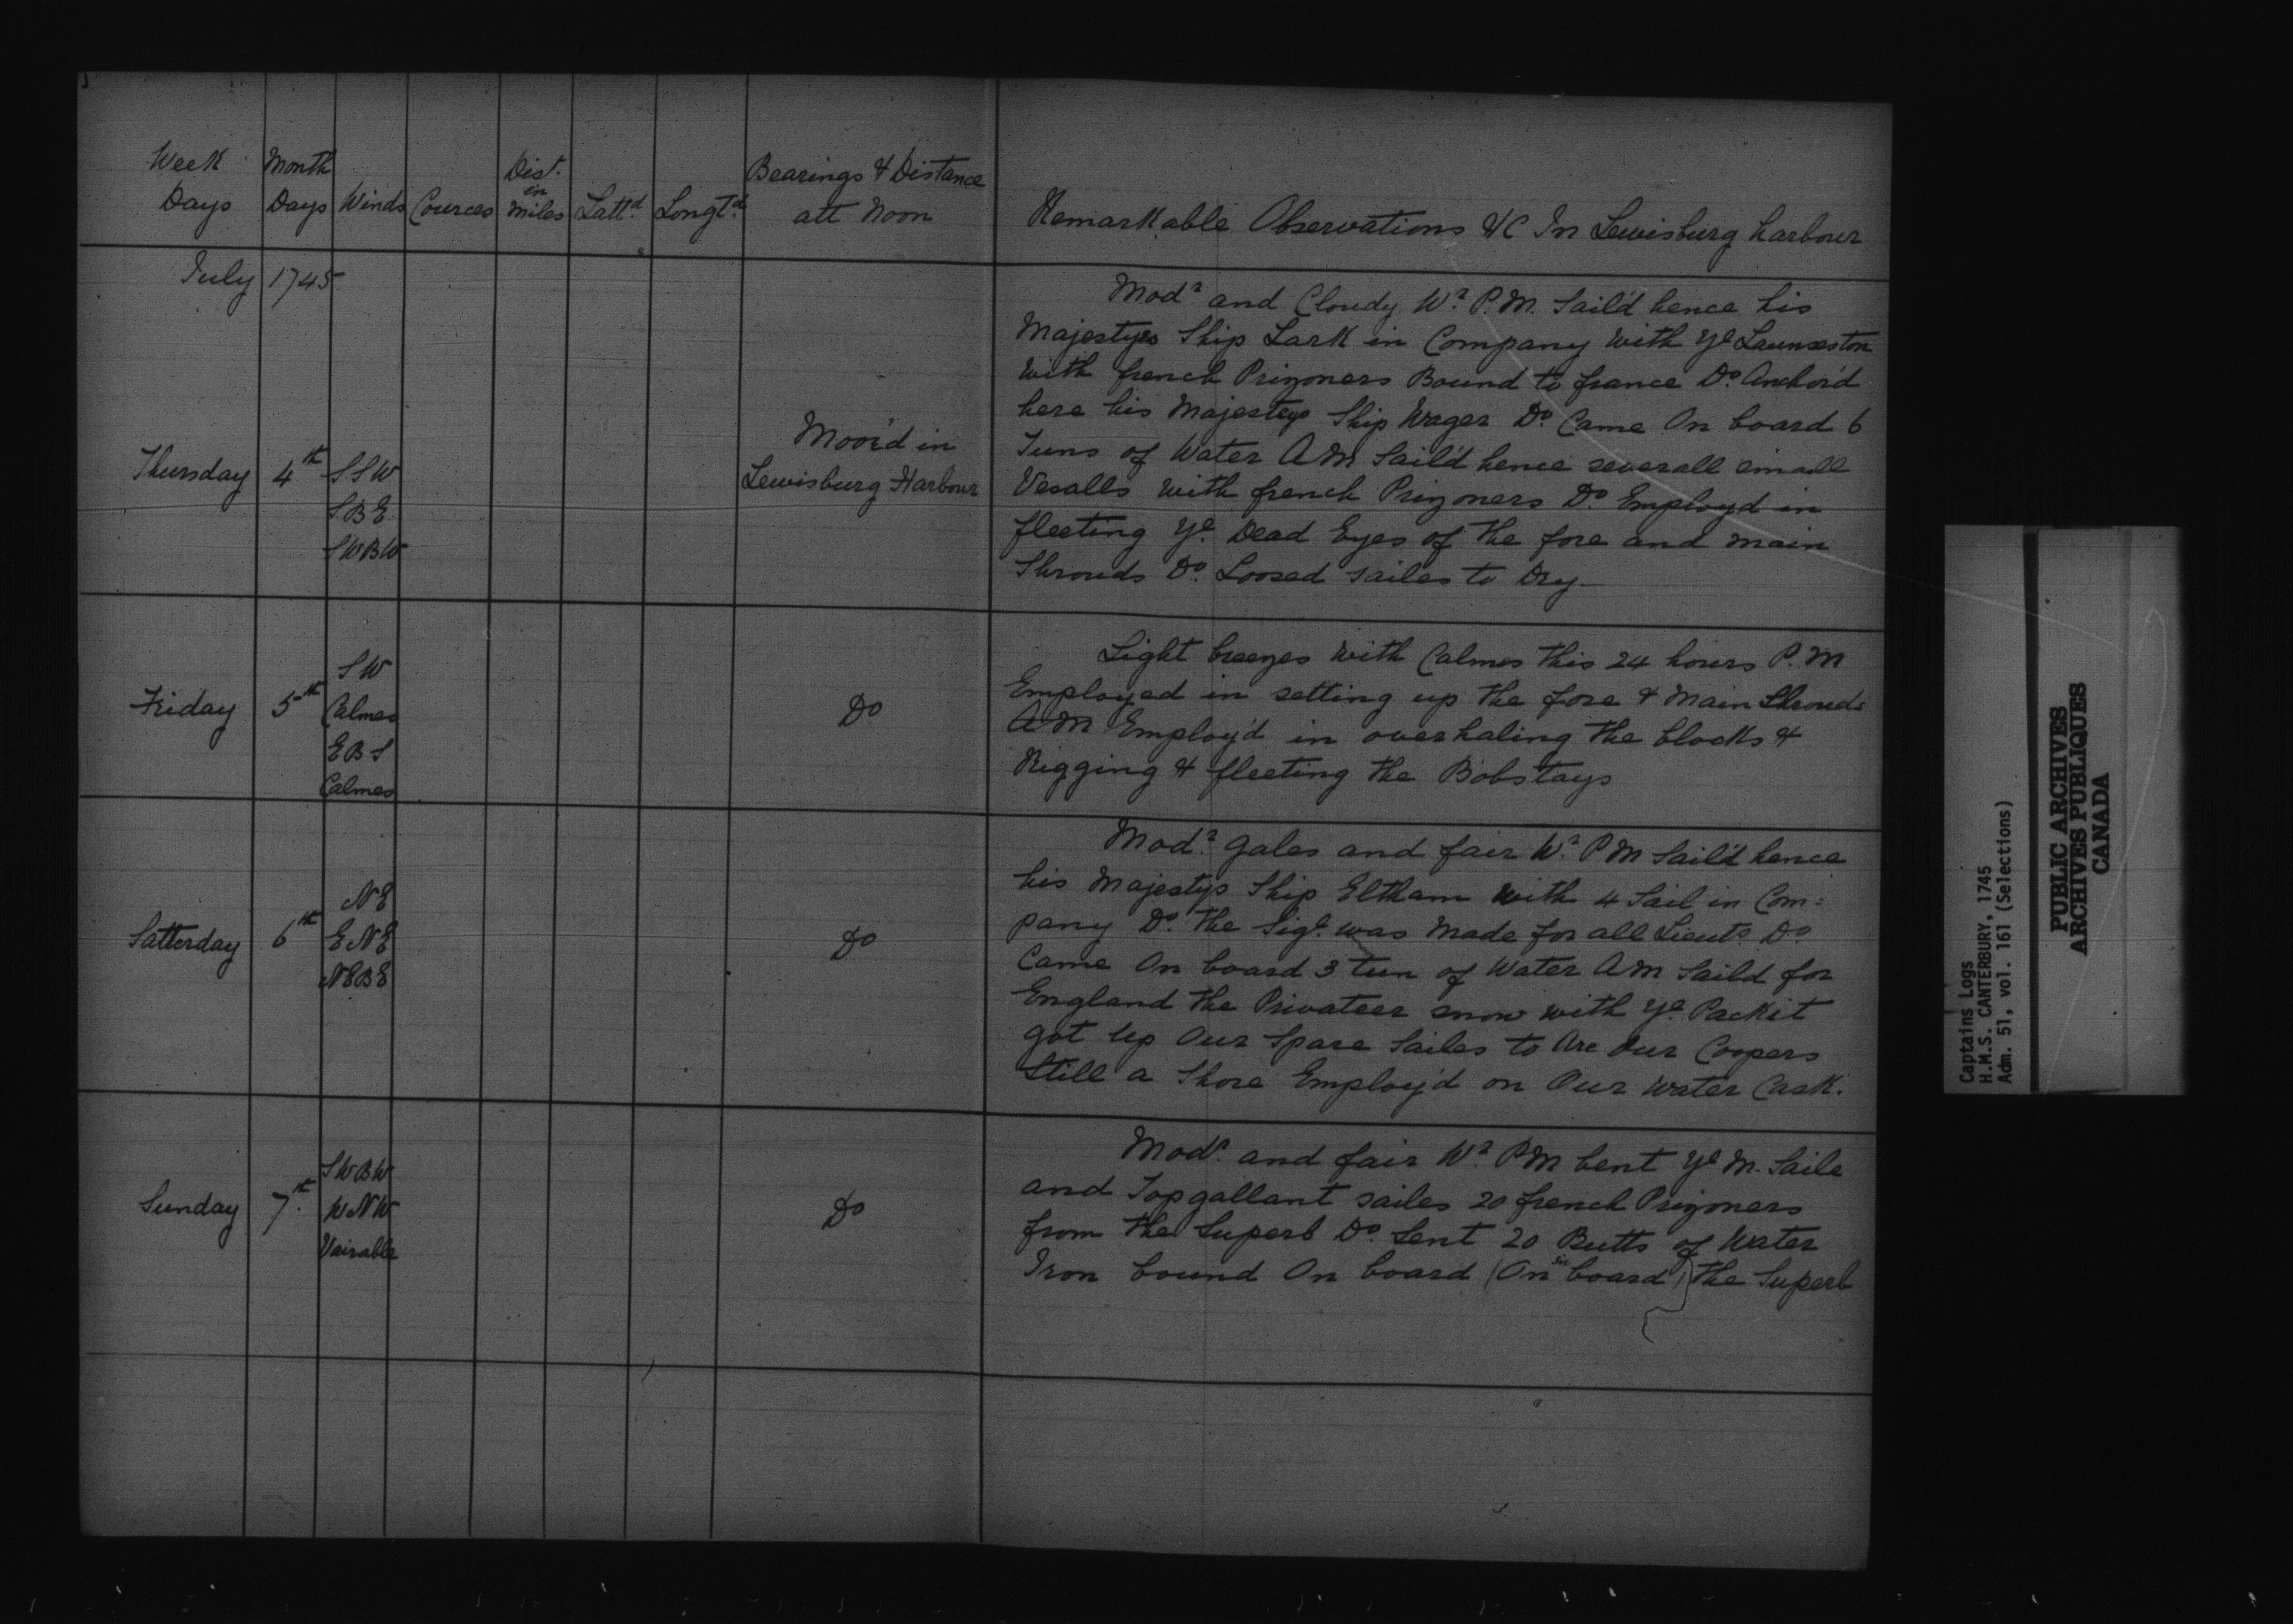 Week Days
Month Days
Winds
Cources
Dist. in Miles
Lattd
Longtd
Bearings & Distance att Noon
Remarkable Observations &C In Lewisburg harbour
July 1745
Thursday 4th
SSW
SBE
SWBW
Moor'd in
Lewisburg Harbour
Modr and Cloudy Wr P.M. Sail'd hence his
Majestyes Ship Lark in Company With Ye Launseston
With french Prizoners Bound to france Do Anchor'd
here his Majestys Ship Wager Do Came On board 6
Tuns of Water AM Sail'd hence severall small
Vesalls with french Prizoners Do Employd in
fleeting Ye Dead Eyes of the fore and main
Shrouds Do Loosed sailes to Dry
Friday 5th
SW
Calmes
EBS
Calmes
Do
Light breezes With Calmes this 24 hours P.M
Employed in setting up the fore & Main Shrouds
AM Employ'd in overhaling the blocks &
Rigging & fleeting the Bobstays
Satterday 6th
NE
ENE
NEBE
Do
Modr gales and fair Wr PM Sail'd hence
his Majestys Ship Eltham With 4 Sail in Com:
pany Do the Sigl was Made for all Lieuts Do
Came On board 3 tun of Water AM Saild for
England the Privateer snow with Ye Packit
got Up Our Spare Sailes to Are Our Coopers
Still a Shore Employ'd on Our Water Cask.
Sunday 7th
SWBW
WNW
Vairable
Do
Modr and fair Wr PM bent Ye M. Saile
and Topgallant sailes 20 french Prizoners
from the Superb Do Sent 20 Butts of Water
Iron bound On board (On sic board) the Superb
Captains Logs
H.M.S. CANTERBURY, 1745
Adm. 51, vol. 161 (Selections)
PUBLIC ARCHIVES
ARCHIVES PUBLIQUES
CANADA